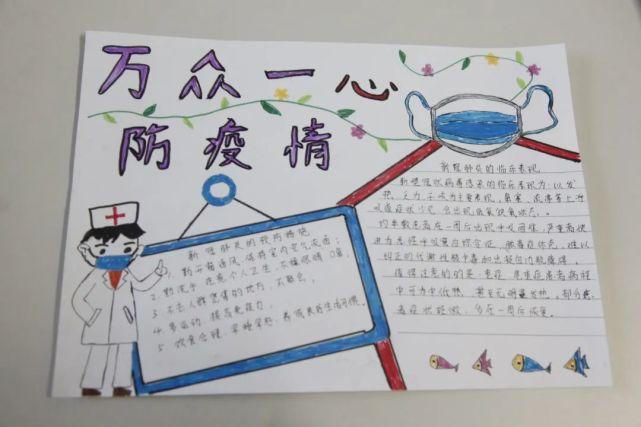 万众一心
防疫情
新冠肺炎的预防措施
1. 勤开窗通风,保持室内空气流通;
2. 勤洗手 注意个人卫生,不揉眼睛 口鼻;
3. 不去人群密集的地方,不聚会;
4. 多运动、提高免疫力;
5. 饮食合理、早睡早起、养成良好生活习惯。
新冠肺炎的临床表现
新冠冠状病毒感染的临床表现为:以发
热、乏力、干咳为主要表现,鼻塞、流涕等上呼
吸道症状少见,会出现缺氧低氧状态。
约半数患者在一周后出现呼吸困难,严重者快
速为急性呼吸窘迫综合征、脓毒症休克、难以
纠正的代谢性酸中毒和出凝血功能障碍。
值得注意的的是:重症、危重症患者病程
中可为中低热,甚至无明显发热。部分患
者症状轻微,多在一周后恢复。